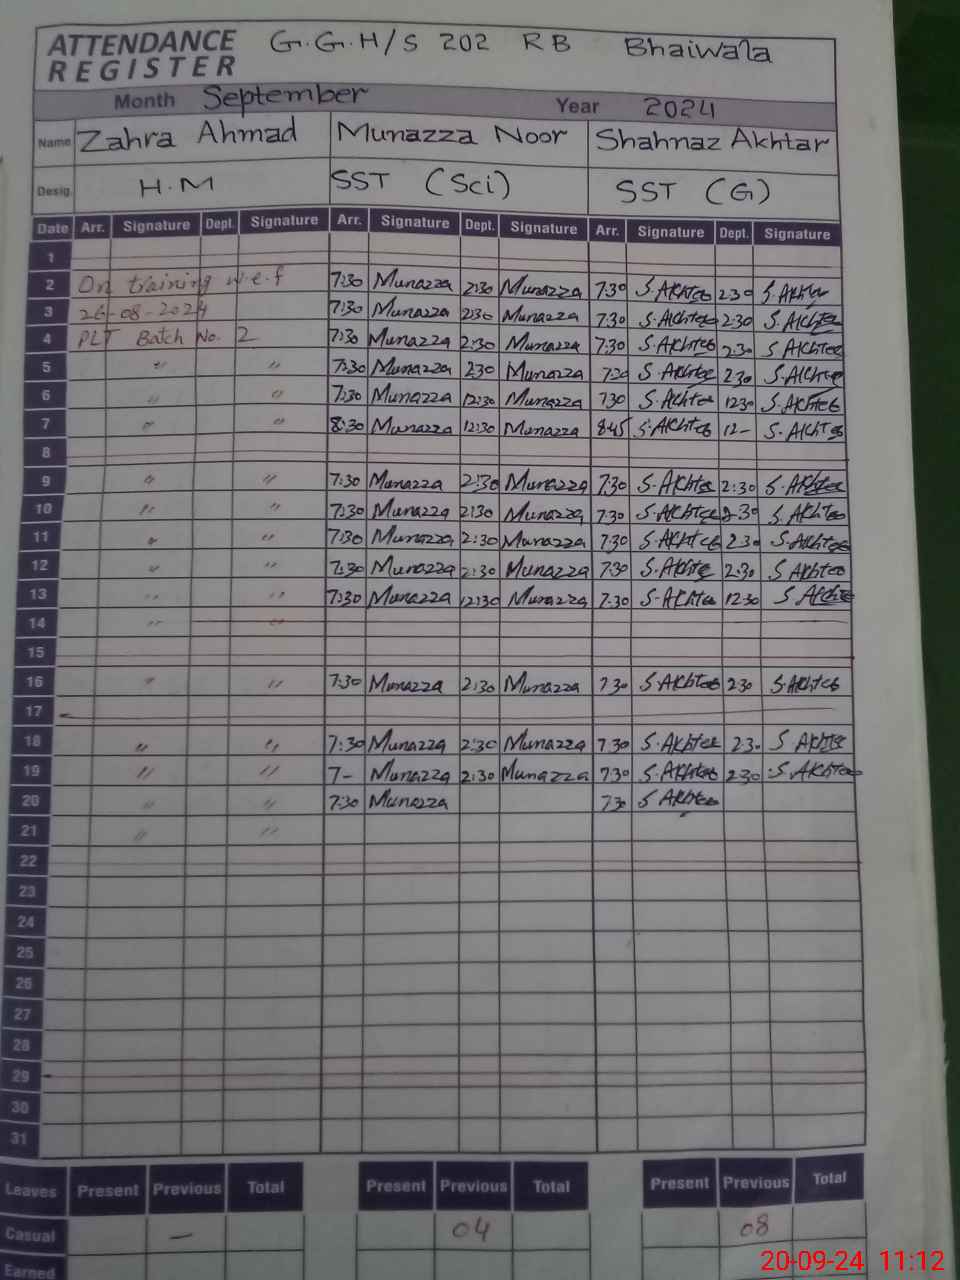 ATTENDANCE REGISTER G.G.H/S 202 RB Bhaiwala
Month September Year 2024
Name Zahra Ahmad Munazza Noor Shahnaz Akhtar
Desig. H.M SST (Sci) SST (G)
Date Arr. Signature Dept. Signature Arr. Signature Dept. Signature Arr. Signature Dept. Signature
1
2 On training w.e.f 7:30 Munazza 2:30 Munazza 7:30 S.Akhter 2:30 S.Akhter
3 26-08-2024 7:30 Munazza 2:30 Munazza 7:30 S.Akhter 2:30 S.Akhter
4 PLT Batch No. 2 7:30 Munazza 2:30 Munazza 7:30 S.Akhter 2:30 S.Akhter
5 〃 〃 7:30 Munazza 230 Munazza 730 S.Akhter 230 S.Akhter
6 〃 〃 7:30 Munazza 12:30 Munazza 730 S.Akhter 1230 S.Akhter
7 〃 〃 8:30 Munazza 12:30 Munazza 845 S.Akhter 12- S.Akhter
8
9 〃 〃 7:30 Munazza 2:30 Munazza 7:30 S.Akhter 2:30 S.Akhter
10 〃 〃 7:30 Munazza 2:30 Munazza 7:30 S.Akhter 2:30 S.Akhter
11 〃 〃 7:30 Munazza 2:30 Munazza 7:30 S.Akhter 230 S.Akhter
12 〃 〃 7:30 Munazza 2:30 Munazza 7:30 S.Akhter 2:30 S Akhter
13 〃 〃 7:30 Munazza 12:30 Munazza 7:30 S.Akhter 12:30 S Akhter
14 〃 〃
15
16 〃 〃 7:30 Munazza 2:30 Munazza 730 S.Akhter 230 S.Akhter
17
18 〃 〃 7:30 Munazza 2:30 Munazza 7:30 S.Akhter 2:30 S Akhter
19 〃 〃 7- Munazza 2:30 Munazza 7:30 S.Akhter 2:30 S.Akhter
20 〃 〃 7:30 Munazza 730 S Akhter
21 〃 〃
22
23
24
25
26
27
28
29
30
31
Leaves Present Previous Total Present Previous Total Present Previous Total
Casual — 04 08
Earned
20-09-24 11:12